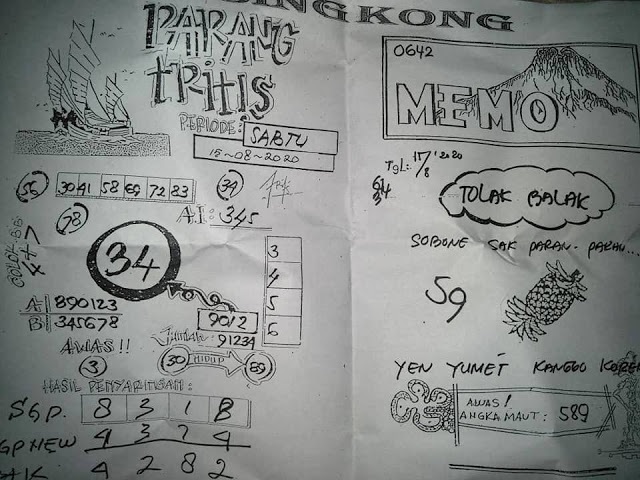 SINGKONG
PARANG
TRITIS
PERIODE: SABTU
15-08-2020
56 3041 58 69 72 83 34
78 AI: 345
34
3
4
5
6
A 890123
B 345678
9012
Jumlah: 91234
AWAS!!
3
30 HIDUP 89
HASIL PENYARINGAN:
SGP. 8 3 1 8
GP NEW 4 3 7 4
HK 4 2 8 2
0642
MEMO
TgL: 17/8 '2020
TOLAK BALAK
SOBONE SAK PARAN. PARAN...
59
YEN YUMET KANGGO KOREK
AWAS!
ANGKA MAUT: 589